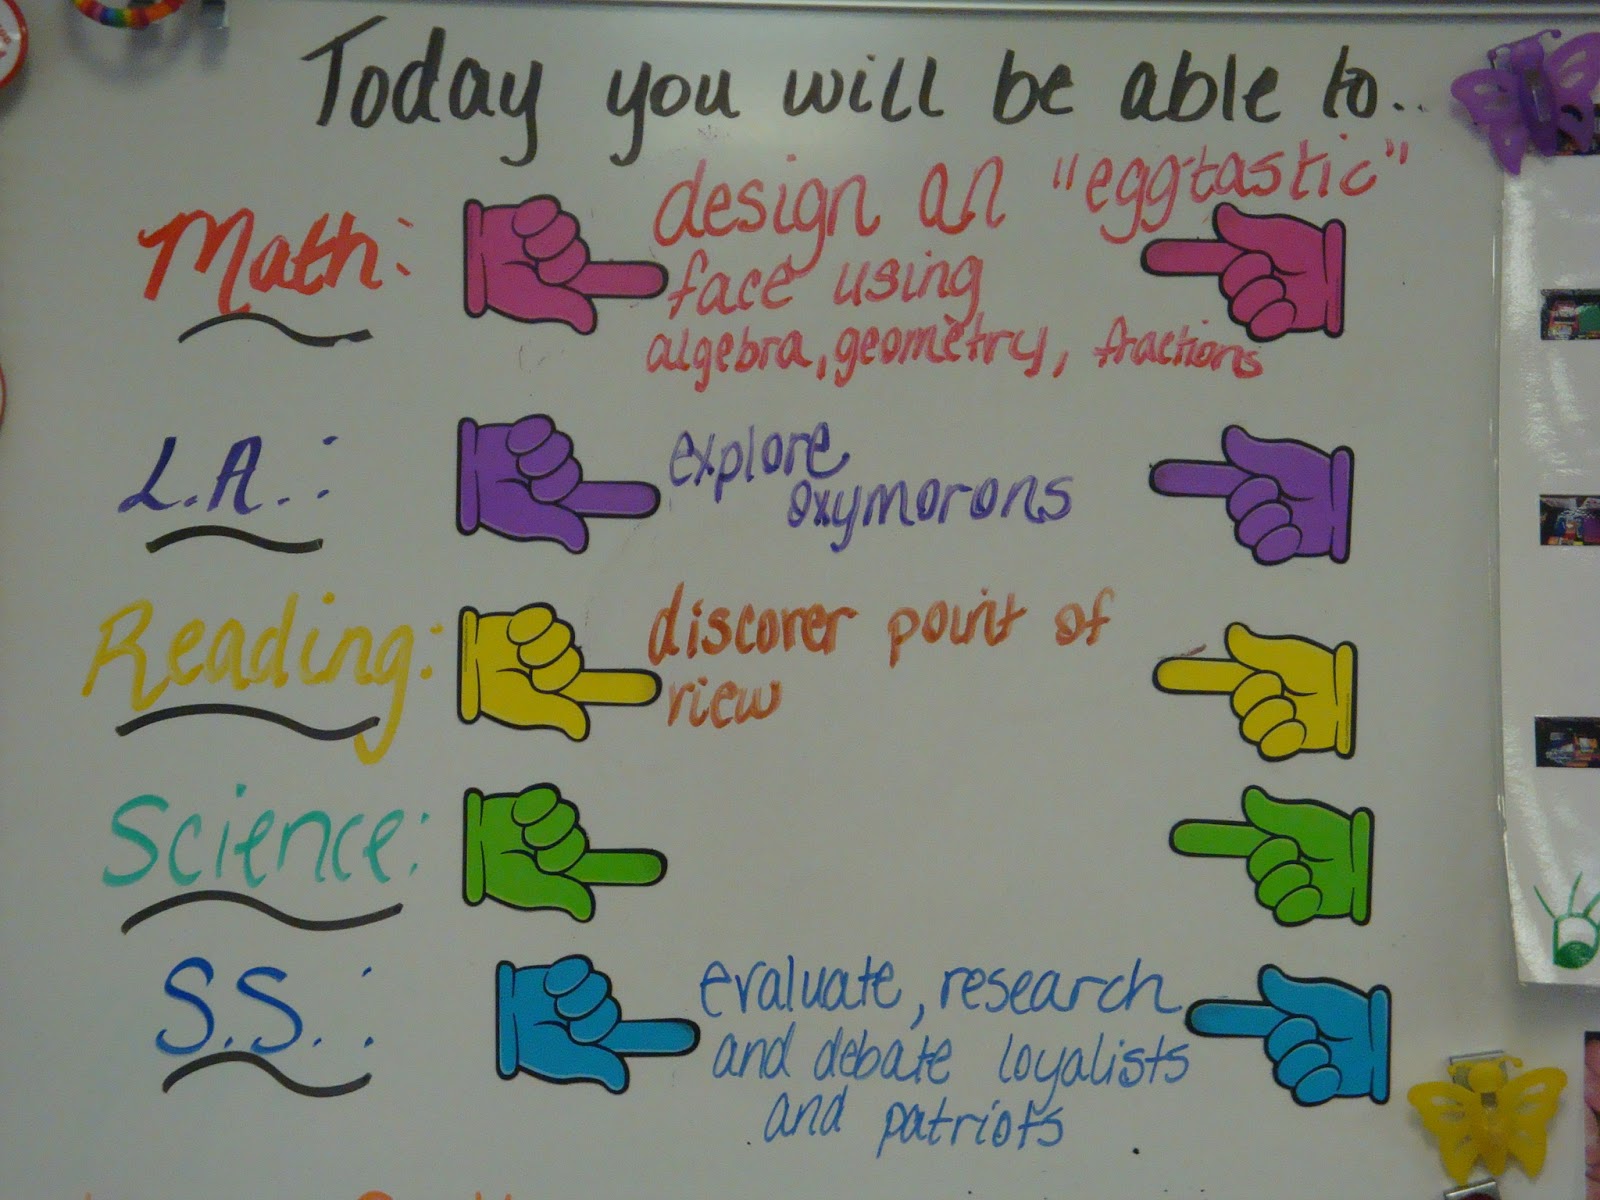 Today you will be able to..
Math:
design an "eggtastic"
face using
algebra, geometry, fractions
L.A.:
explore
oxymorons
Reading:
discover point of
view
Science:
S.S.:
evaluate, research
and debate loyalists
and patriots